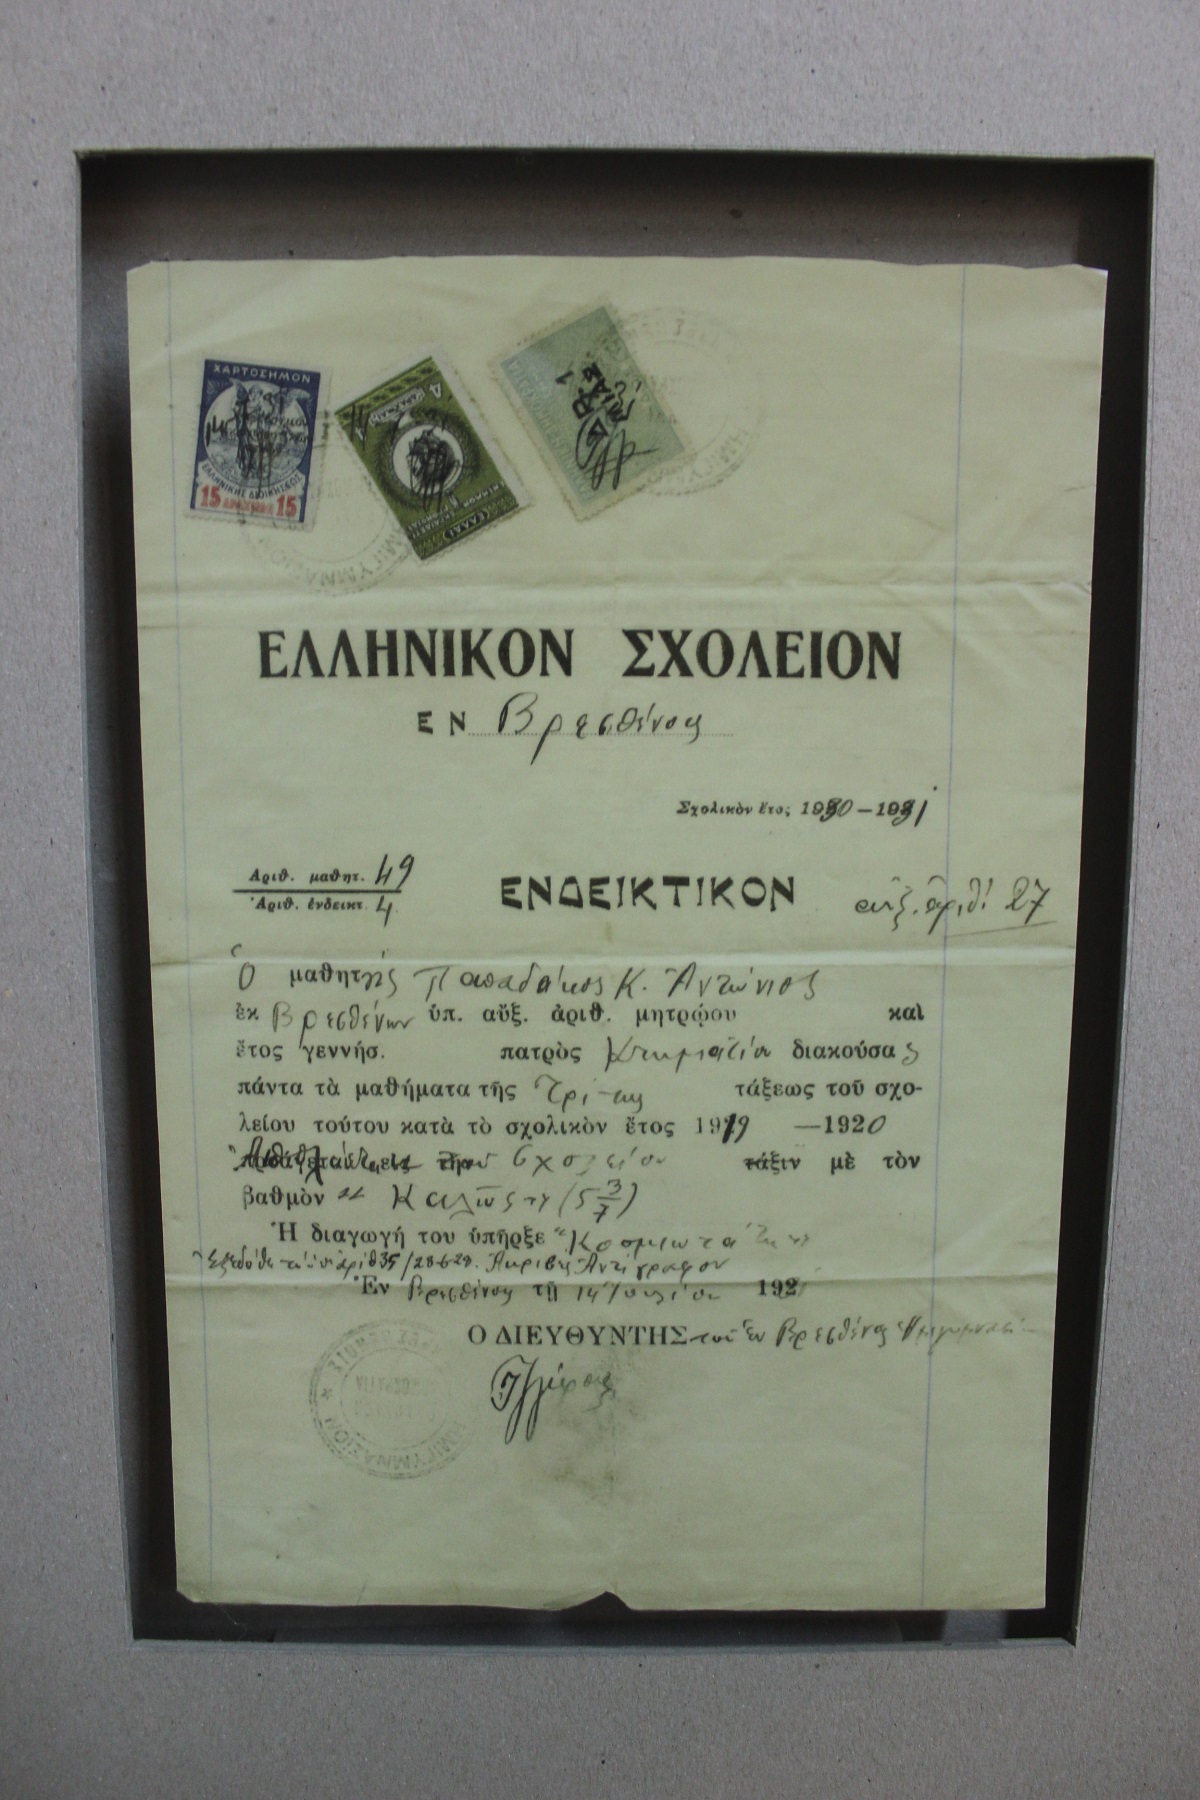 ΧΑΡΤΟΣΗΜΟΝ
ΕΛΛΗΝΙΚΗΣ ΔΙΟΙΚΗΣΕΩΣ
15 ΔΡΑΧΜΑΙ 15
ΕΛΛΗΝΙΚΟΝ ΣΧΟΛΕΙΟΝ
ΕΝ Βρεσθένοις
Σχολικὸν ἔτος 1930-1931
Ἀριθ. μαθητ. 49
Ἀριθ. ἐνδεικτ. 4
ΕΝΔΕΙΚΤΙΚΟΝ
αὐξ. ἀριθ. 27
Ὁ μαθητὴς Παπαδάκος Κ. Ἀντώνιος
ἐκ Βρεσθένων ὑπ. αὔξ. ἀριθ. μητρῴου καὶ
ἔτος γεννήσ. πατρὸς διακούσας
πάντα τὰ μαθήματα τῆς Τρίτης τάξεως τοῦ σχο-
λείου τούτου κατὰ τὸ σχολικὸν ἔτος 1919 —1920
σχολείου τάξιν μὲ τὸν
βαθμὸν " Καλῶς " (5 3/7)
Ἡ διαγωγή του ὑπῆρξε "Κοσμιωτάτη"
Ἐξεδόθη ἀριθ 35/28-6-28. Ἀκριβὲς Ἀντίγραφον
Ἐν Βρεσθένοις τῇ 14 Ἰουλίου 192
Ο ΔΙΕΥΘΥΝΤΗΣ τοῦ ἐν Βρεσθένοις Ἡμιγυμνασί
ΗΜΙΓΥΜΝΑΣΙΟΝ